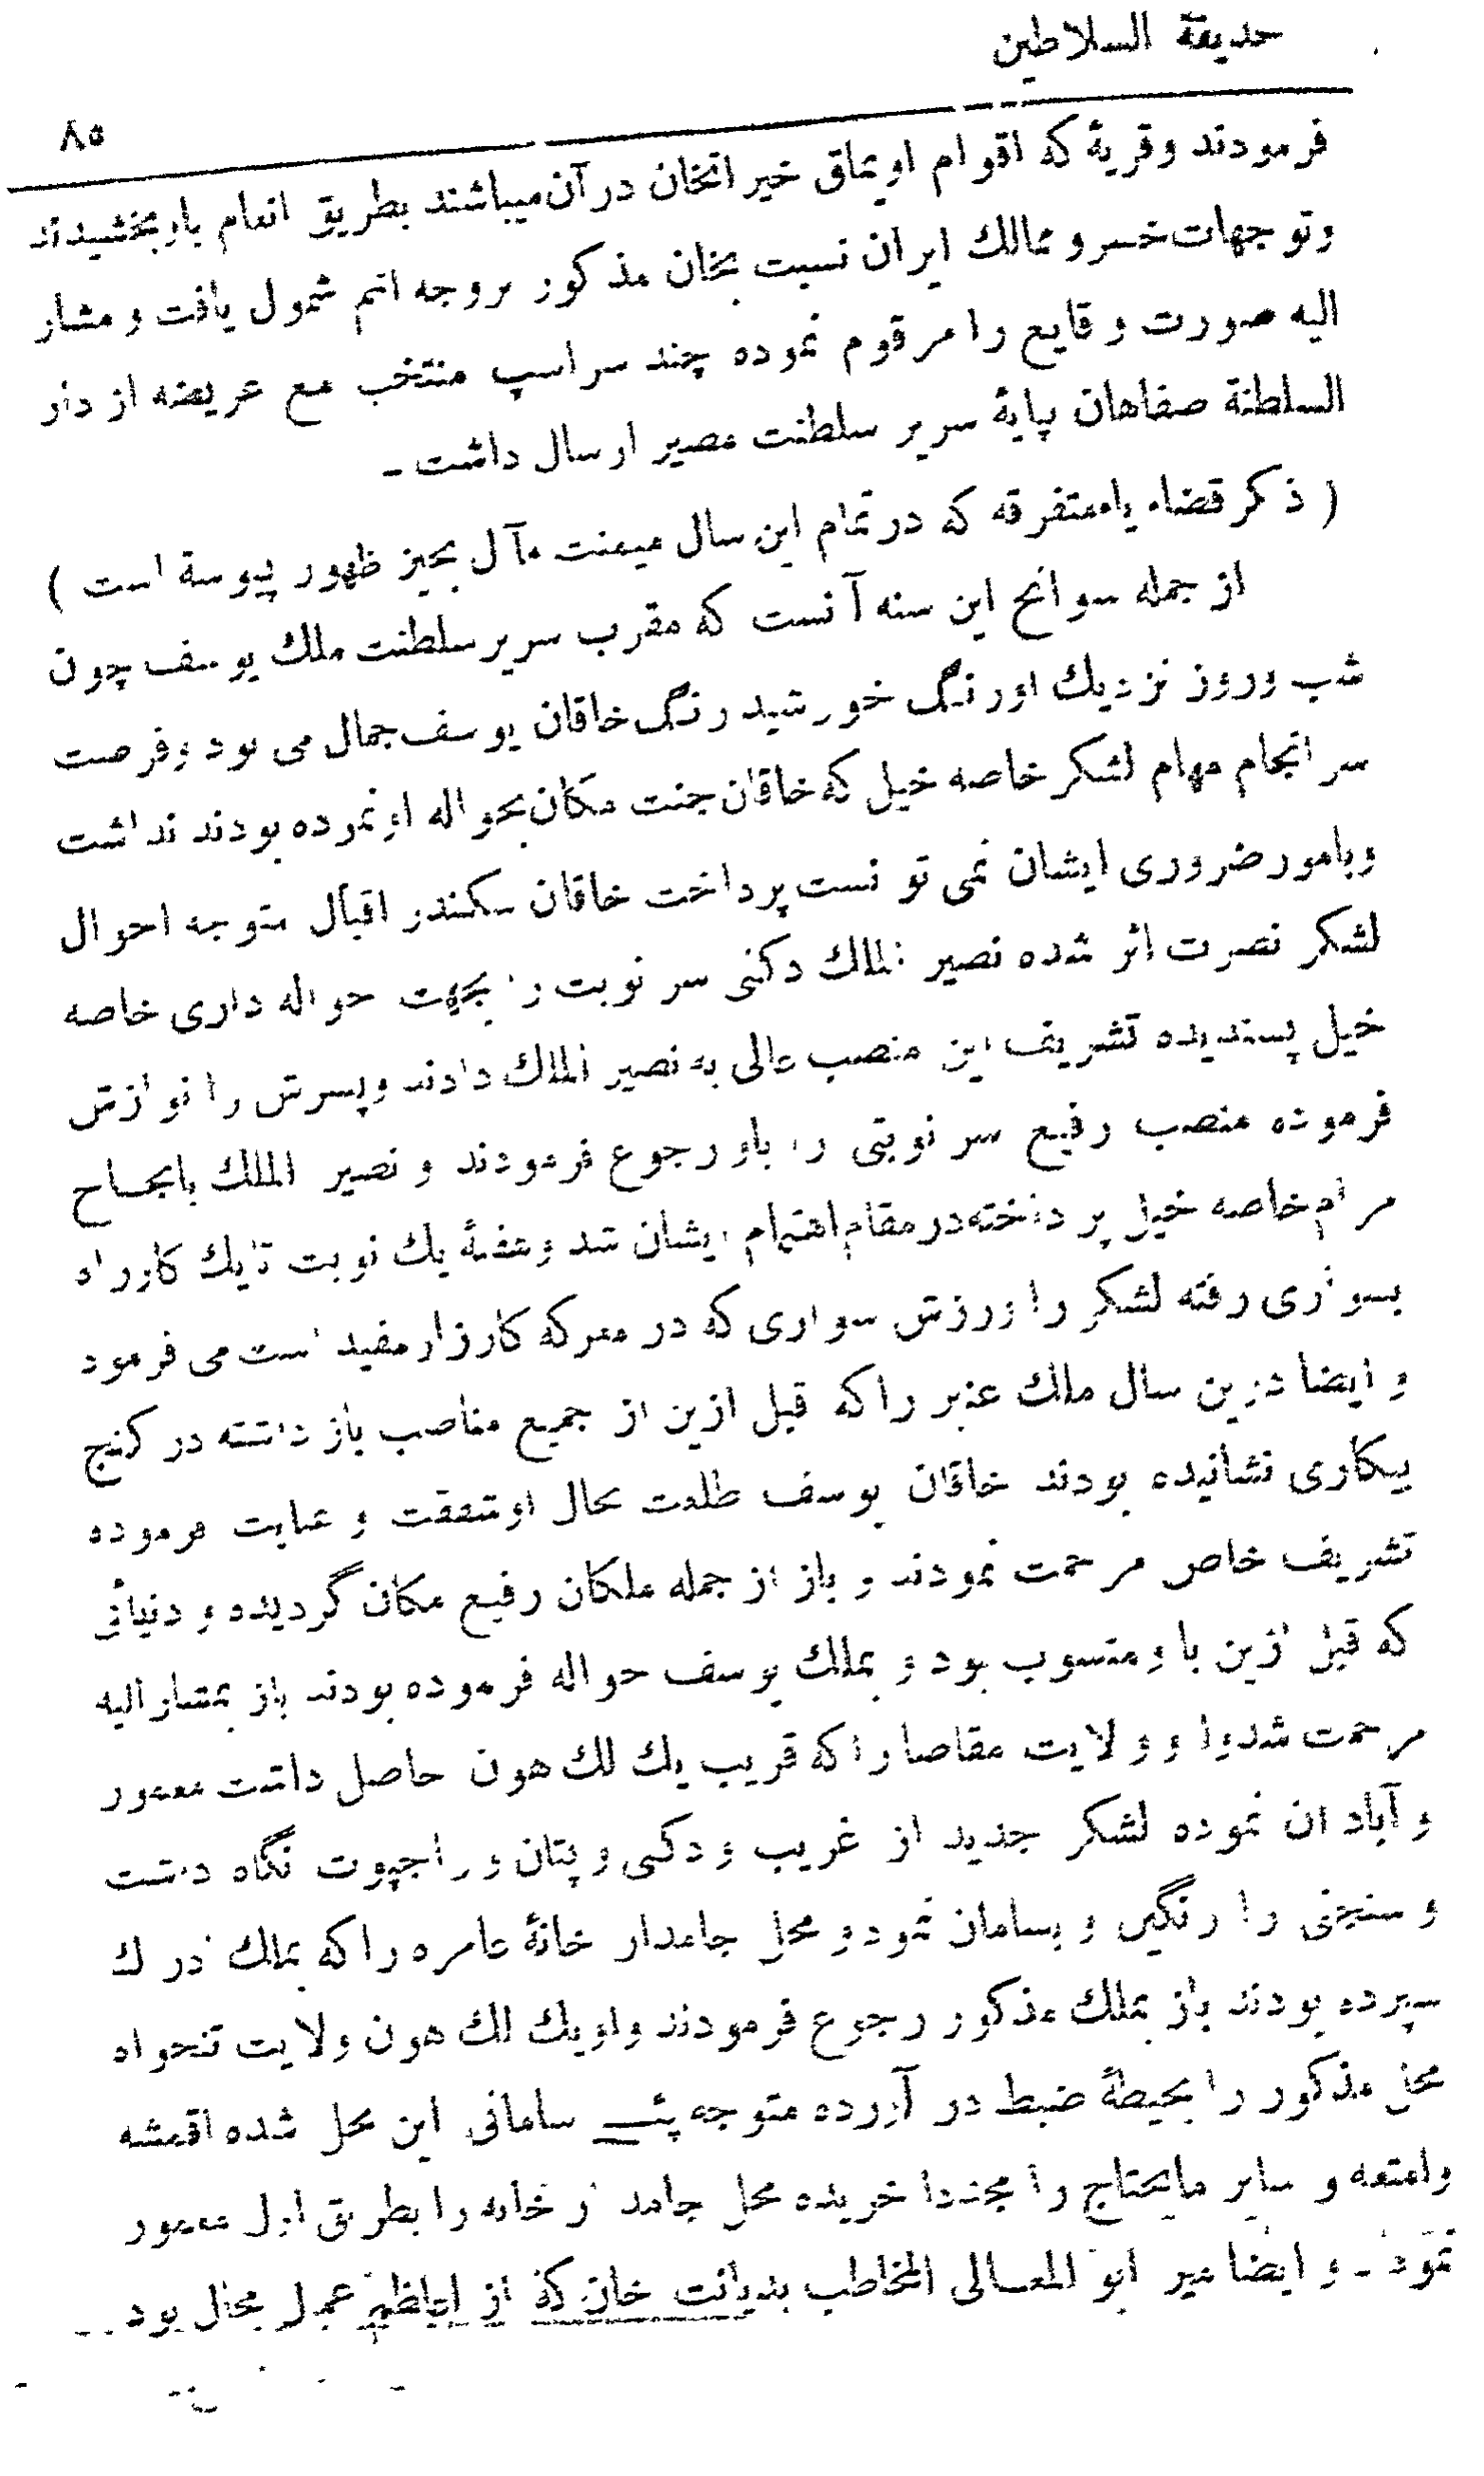 حديقة السلاطين
٨٥
فرمودند وقرية كه اقوام اويماق خيراتخان درآن ميباشند بطريق انعام باو بخشيدند
وتوجهات خسرو ممالك ايران نسبت بخان مذكور بروجه اتم شمول يافت و مشار
اليه صورت وقايع را مرقوم نموده چند سراسپ منتخب مع عريضه از دار
السلطنة صفاهان پاية سرير سلطنت مصير ارسال داشت ـ
( ذكر قضاياء متفرقه كه در تمام اين سال ميمنت مآل بحيز ظهور پيوسة است )
از جمله سوانح اين سنه آنست كه مقرب سرير سلطنت ملك يوسف چون
شب وروز نزديك اورنگ خورشيد رنگ خاقان يوسف جمال مى بود وفرصت
سرانجام مهام لشكر خاصه خيل كه خاقان جنت مكان بحواله او نموده بودند نداشت
وبامور ضرورى ايشان نمى توانست پرداخت خاقان سكندر اقبال متوجه احوال
لشكر نصرت اثر شده نصير الملك دكنى سر نوبت را بجهت حواله دارى خاصه
خيل پسنديده تشريف اين منصب عالى به نصير الملك دادند وپسرش را نوازش
فرموده منصب رفيع سر نوبتى را باو رجوع فرمودند و نصير الملك بانجاح
مرام خاصه خيل پرداخته در مقام اهتمام ايشان شد وهفتۀ يك نوبت تا يك كاوراه
بسوارى رفته لشكر را ورزش سوارى كه در معركه كارزار مفيد است مى فرمود
و ايضا درين سال ملك عنبر را كه قبل ازين از جميع مناصب باز داشته در كنج
بيكارى نشانيده بودند خاقان يوسف طلعت بحال او شفقت و عنايت فرموده
تشريف خاص مرحمت نمودند و باز از جمله ملكان رفيع مكان گرديده و
كه قبل ازين باو منسوب بود و بملك يوسف حواله فرموده بودند باز بمشار اليه
مرحمت شد واو ولايت مقاصا را كه قريب يك لك هون حاصل داشت معمور
وآبادان نموده لشكر جديد از غريب و دكنى و پتان و راجپوت نگاه داشت
و را رنگين و بسامان نمود و محل جامدار خانۀ عامره را كه بملك
سپرده بودند باز بملك مذكور رجوع فرمودند واو يك لك هون ولايت تنخواه
محل مذكور را بحيطۀ ضبط در آورده متوجه سامانى اين محل شده اقمشه
وامتعه و ساير مايحتاج را مجددا خريده محل جامدار خانه را بطريق اول معمور
نمود ـ و ايضا مير ابو المعالى المخاطب بديانت خان كه از عمل محال بود